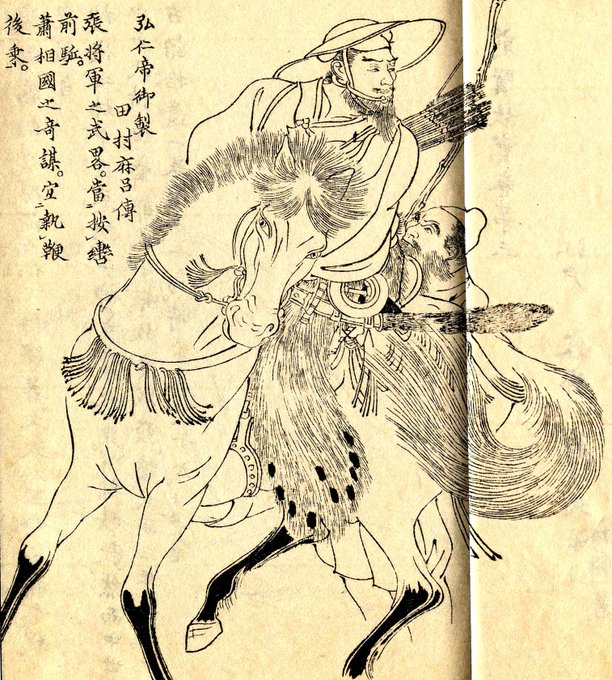 弘仁帝御製
田村麻呂傳
張将軍之武畧。當按轡
前駈。
蕭相國之奇謀。宜執鞭
後乗。